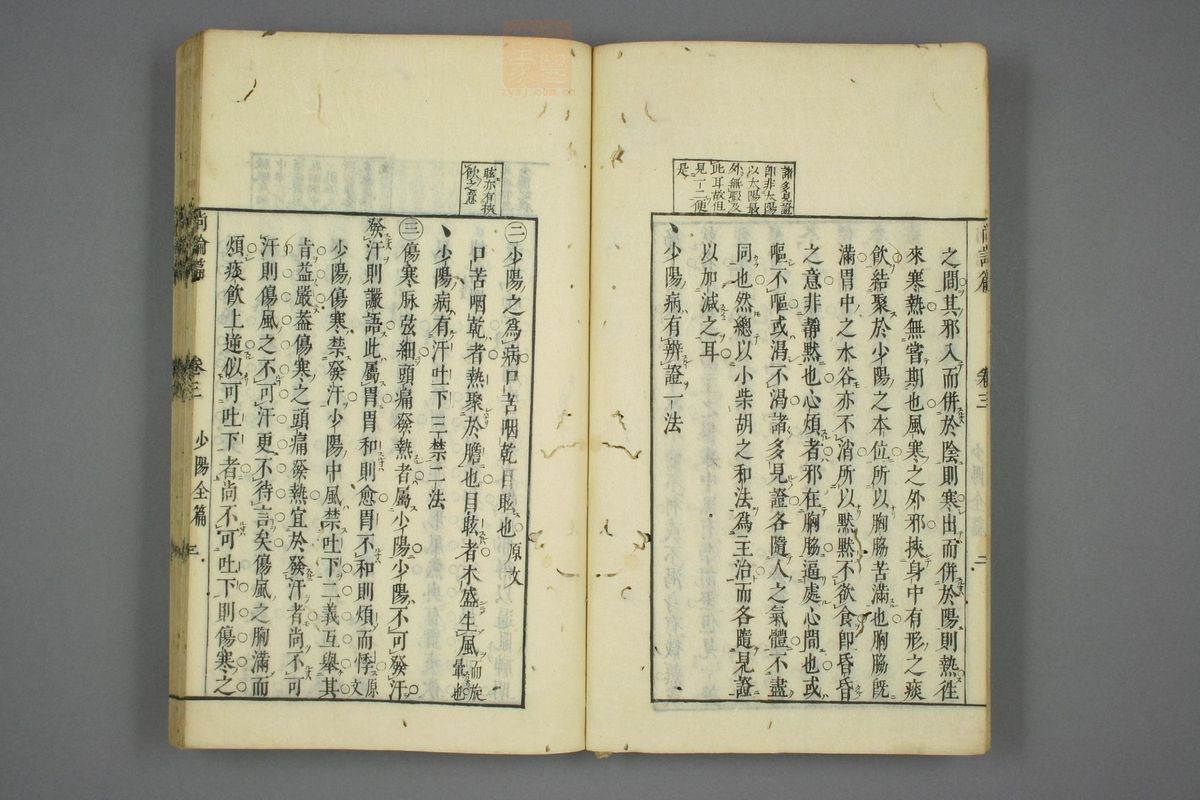 諸多見證
即非太陽
以太陽最
外無暇及
此耳故但
見一二便
是
尚論篇
卷三
少陽全篇
二
之間其邪入而併於陰則寒出而併於陽則熱徃
來寒熱無常期也風寒之外邪挾身中有形之痰
飲結聚於少陽之本位所以胸脇苦滿也胸脇旣
滿胃中之水谷亦不消所以黙黙不欲食卽昏昏
之意非靜黙也心煩者邪在胸脇逼處心間也或
嘔不嘔或渴不渴諸多見證各隨人之氣體不盡
同也然總以小柴胡之和法爲主治而各隨見證
以加減之耳
少陽病有辨證一法
眩亦有挾
飲之意
㊁少陽之爲病口苦咽乾目眩也原文
口苦咽乾者熱聚於膽也目眩者木盛生風而旋
暈也
少陽病有汗吐下三禁二法
㊂傷寒脉弦細頭痛發熱者屬少陽少陽不可發汗
發汗則讝語此屬胃胃和則愈胃不和則煩而悸原
文
少陽傷寒禁發汗少陽中風禁吐下二義互舉其
旨益嚴蓋傷寒之頭痛發熱宜於發汗者尚不可
汗則傷風之不可汗更不待言矣傷風之胸滿而
煩痰飲上逆似可吐下者尚不可吐下則傷寒之
尚論篇
卷三
少陽全篇
三